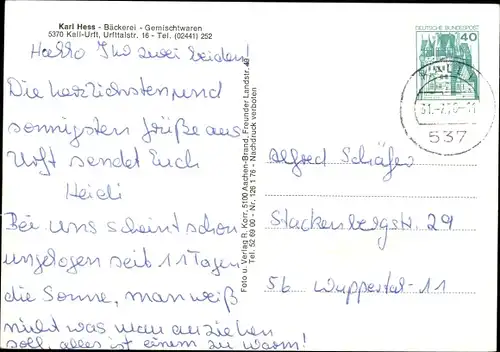 Karl Hess - Bäckerei - Gemischtwaren
5370 Kall-Urft, Urfttalstr. 16 - Tel. (02441) 252
Hallo Ihr zwei beiden!
Die herzlichsten und
sonnigsten Grüße aus
Urft sendet Euch
Heidi
Bei uns scheint schon
ungelogen seit 11 Tagen
die Sonne, man weiß
nicht was man anziehen
soll, alles ist einem zu warm!
Foto u. Verlag R. Korr, 5100 Aachen-Brand, Freunder Landstr. 49
Tel. 52 69 00 - Nr. 126 1 76 - Nachdruck verboten
DEUTSCHE BUNDESPOST
40
537
Alfred Schäfer
Stackenbergstr. 29
56 Wuppertal-11